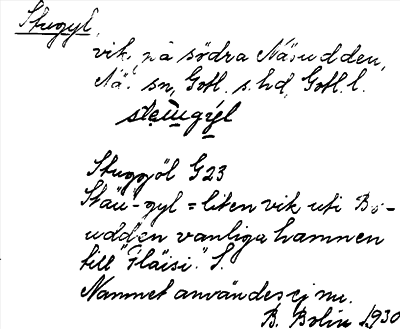 Stugyl,
vik på södra Näsudden,
Nä! sn, Gotl. s. hd, Gotl. l.
Stuggöl G23
Stäu-gyl = liten vik uti Bö-
udden vanliga hamnen
till "Fläisi." S.
Namnet användes ej nu.
B. Bolin 1930